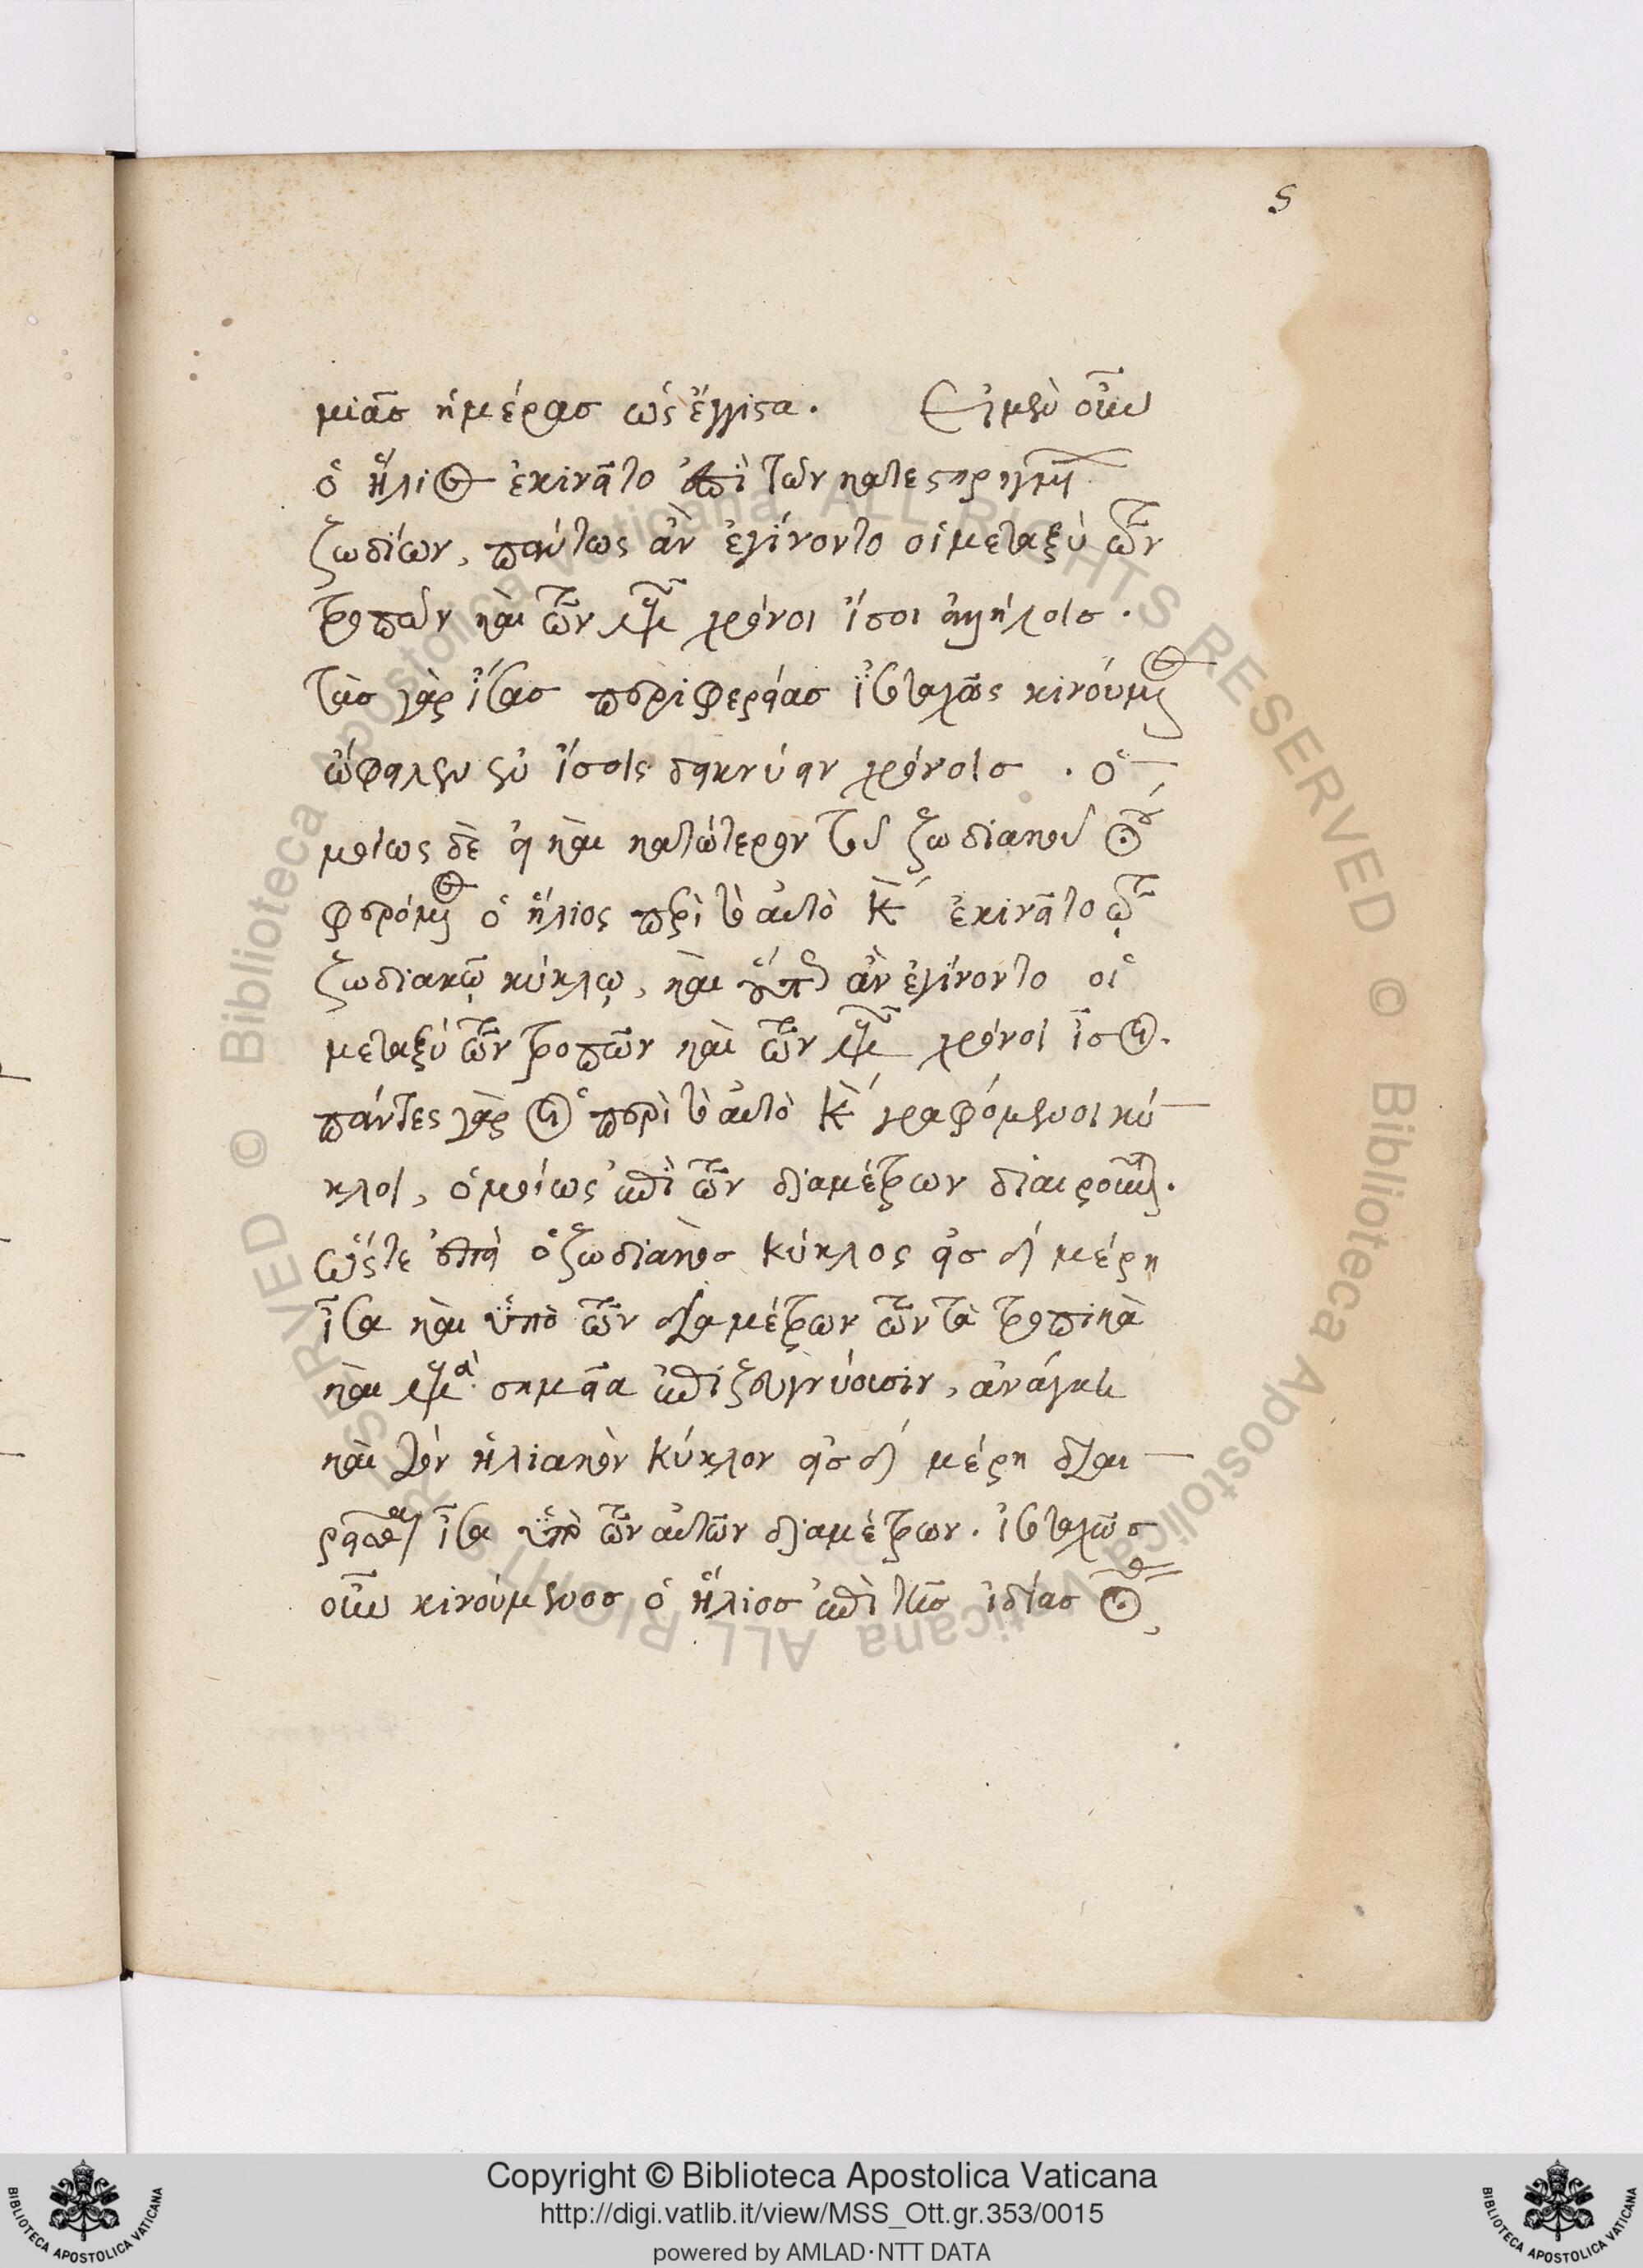 ς
μιᾶς ἡμέρας ὡς ἔγγιστα. Εἰ μὲν οὖν
ὁ ἥλιος ἐκινεῖτο ἐπὶ τῶν κατεστηριγμένων
ζωδίων, πάντως ἂν ἐγίνοντο οἱ μεταξὺ τῶν
τροπῶν καὶ τῶν ἰσημεριῶν χρόνοι ἴσοι ἀλλήλοις.
τὰς γὰρ ἴσας περιφερείας ἰσοταχῶς κινούμενος
ὤφειλεν ἐν ἴσοις δεικνύειν χρόνοις. ὁ
μοίως δὲ εἰ καὶ κατώτερον τοῦ ζωδιακοῦ κύκλου
φερόμενος ὁ ἥλιος περὶ τὸ αὐτὸ κέντρον ἐκινεῖτο τῷ
ζωδιακῷ κύκλῳ, καὶ οὕτως ἂν ἐγίνοντο οἱ
μεταξὺ τῶν τροπῶν καὶ τῶν ἰσημεριῶν χρόνοι ἴσοι.
πάντες γὰρ οἱ περὶ τὸ αὐτὸ κέντρον γραφόμενοι κύ
κλοι, ὁμοίως ὑπὸ τῶν διαμέτρων διαιροῦνται.
ὥστε ἐπεὶ ὁ ζωδιακὸς κύκλος εἰς δ μέρη
ἴσα καὶ ὑπὸ τῶν διαμέτρων τῶν τὰ τροπικὰ
καὶ ἰσημερινὰ σημεῖα ἐπιζευγνύουσιν, ἀνάγκη
καὶ τὸν ἡλιακὸν κύκλον εἰς δ μέρη διαι
ρεῖσθαι ἴσα ὑπὸ τῶν αὐτῶν διαμέτρων. ἰσοταχῶς
οὖν κινούμενος ὁ ἥλιος ἐπὶ τῆς ἰδίας
Copyright © Biblioteca Apostolica Vaticana
http://digi.vatlib.it/view/MSS_Ott.gr.353/0015
powered by AMLAD·NTT DATA
BIBLIOTECA APOSTOLICA VATICANA
BIBLIOTECA APOSTOLICA VATICANA
© Biblioteca Apostolica Vaticana ALL RIGHTS RESERVED
© Biblioteca Apostolica Vaticana ALL RIGHTS RESERVED